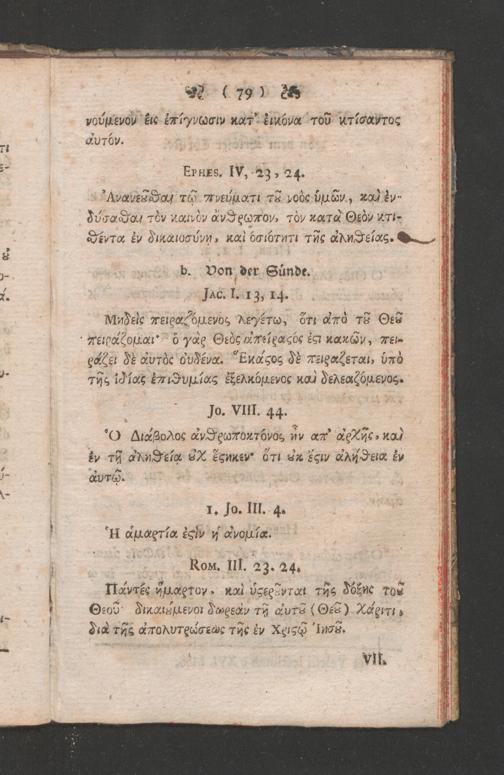 ( 79 )
νούμενον εἰς ἐπίγνωσιν κατ' εἰκόνα τοῦ κτίσαντος
αὐτόν.
EPHES. IV, 23, 24.
Ἀνανεοῦσθαι τῷ πνεύματι τοῦ νοὸς ὑμῶν, καὶ ἐν-
δύσασθαι τὸν καινὸν ἄνθρωπον, τὸν κατὰ Θεὸν κτι-
σθέντα ἐν δικαιοσύνῃ, καὶ ὁσιότητι τῆς ἀληθείας.
b. Von der Sünde.
JAC. I. 13, 14.
Μηδεὶς πειραζόμενος λεγέτω, ὅτι ἀπὸ τοῦ Θεοῦ
πειράζομαι· ὁ γὰρ Θεὸς ἀπείραςός ἐςι κακῶν, πει-
ράζει δὲ αὐτὸς οὐδένα. Ἕκαςος δὲ πειράζεται, ὑπὸ
τῆς ἰδίας ἐπιθυμίας ἐξελκόμενος καὶ δελεαζόμενος.
Jo. VIII. 44.
Ὁ Διάβολος ἀνθρωποκτόνος ἦν ἀπ' ἀρχῆς, καὶ
ἐν τῇ ἀληθείᾳ οὐχ ἕςηκεν· ὅτι οὐκ ἔςιν ἀλήθεια ἐν
αὐτῷ.
1. Jo. III. 4.
Ἡ ἁμαρτία ἐςὶν ἡ ἀνομία.
ROM. III. 23. 24.
Πάντές ἥμαρτον, καὶ ὑςεροῦνται τῆς δόξης τοῦ
Θεοῦ· δικαιούμενοι δωρεὰν τῇ αὐτοῦ (Θεοῦ) χάριτι,
διὰ τῆς ἀπολυτρώσεως τῆς ἐν Χριςῷ Ἰησοῦ.
VII.